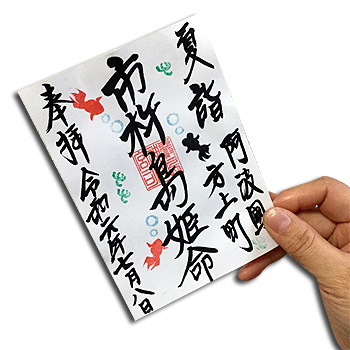 夏詣
阿波國
方上町
市杵島姫命
奉拝
令和六年七月八日